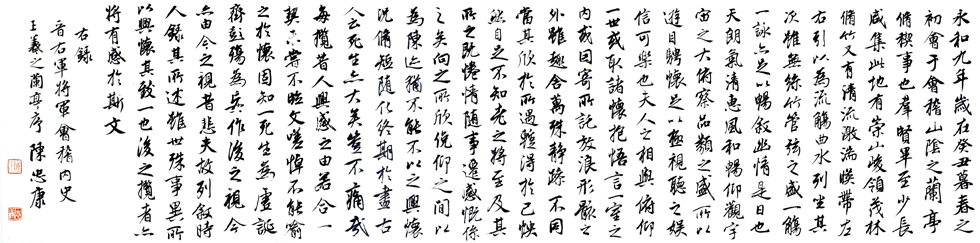 永和九年歲在癸丑暮春之
初會于會稽山陰之蘭亭
脩稧事也羣賢畢至少長
咸集此地有崇山峻領茂林
脩竹又有清流激湍暎帶左
右引以為流觴曲水列坐其
次雖無絲竹管弦之盛一觴
一詠亦足以暢叙幽情是日也
天朗氣清惠風和暢仰觀宇
宙之大俯察品類之盛所以
遊目騁懷足以極視聽之娛
信可樂也夫人之相與俯仰
一世或取諸懷抱悟言一室之
內或因寄所託放浪形骸之
外雖趣舍萬殊靜躁不同
當其欣於所遇輒得於己怏
然自足不知老之將至及其
所之既惓情隨事遷感慨係
之矣向之所欣俛仰之間以
為陳迹猶不能不以之興懷
況脩短隨化終期於盡古
人云死生亦大矣豈不痛哉
每攬昔人興感之由若合一
契未嘗不臨文嗟悼不能喻
之於懷固知一死生為虛誕
齊彭殤為妄作後之視今
亦由今之視昔悲夫故列叙時
人錄其所述雖世殊事異所
以興懷其致一也後之攬者亦
將有感於斯文
右錄
晉右軍將軍會稽內史
王羲之蘭亭序 陳忠康